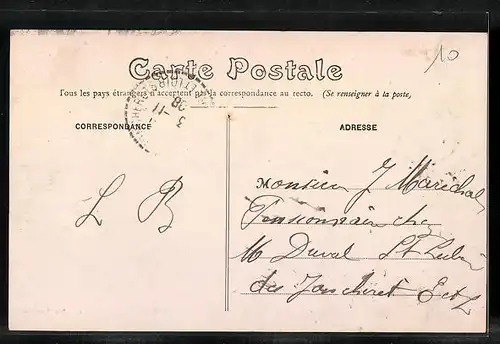 10
Carte Postale
Tous les pays étrangers n'acceptent pas la correspondance au recto. (Se renseigner à la poste,
CORRESPONDANCE
ADRESSE
3 -11
08
L B
Monsieur J Maréchal
Pensionnaire chez
M Duval St Lubin
des Joncherets E et L